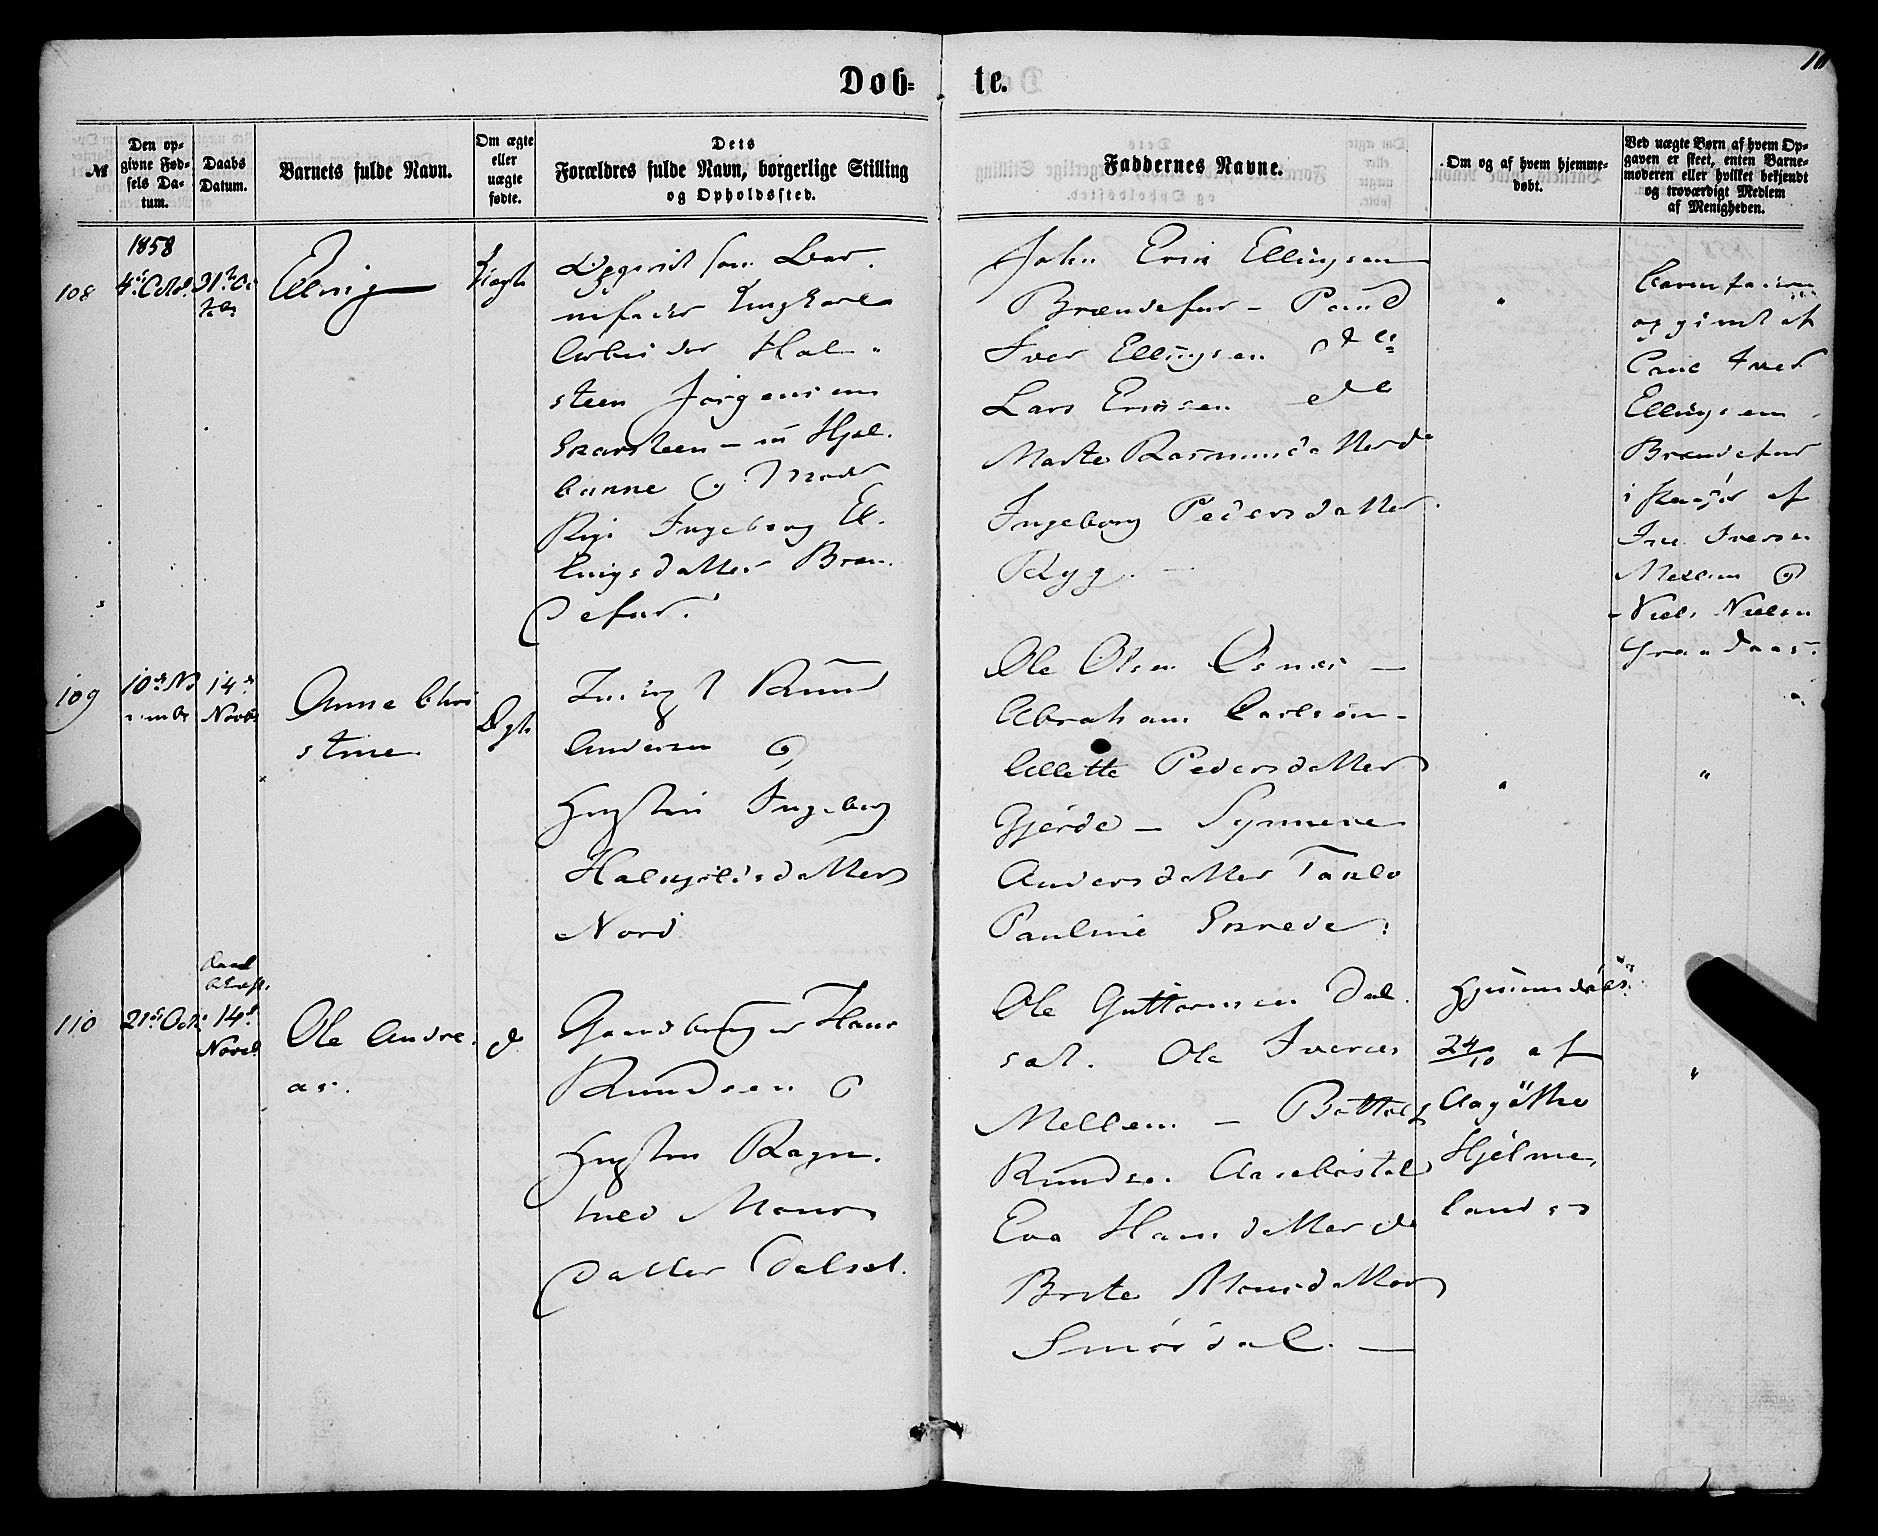 Døb= te.
10
№
Den op-
givne Fød-
sels Da-
tum.
Daabs
Datum.
Barnets fulde Navn.
Om ægte
eller
uægte
fødte.
Dets
Forældres fulde Navn, borgerlige Stilling
og Opholdssted.
Faddernes Navne.
Om og af hvem hjemme-
døbt.
Ved uægte Børn af hvem Op-
gaven er skeet, enten Barne-
moderen eller hvilket bekjendt
og troværdigt Medlem
af Menigheden.
1858
108
4de Octbr
31te Oc
tbr
Elling
Uægte
Opgivet som Bar
nefader Ungkarl
Arbeider Hal
steen Jørgensen
Skarsteen - Hjel
banne og Moder
Pige Ingeborg El
lingsdatter Bræn
defur.
John Erik Ellingsen
Brændefur - Paul
Iver Ellingsen do
Lars Eriksen do
Marte Rasmusdatter do
Ingeborg Pedersdatter
Ryg. -
"
Barnefaderen
opgivet af
Paul Iver
Ellingsen
Brændefur
i af
Iversen
Mellem og
Niels Nielsen
109
10de No
vembr
14de
Novbr
Anne Chri
stine
Ægte
Knud
Andersen og
Hustru Ingeborg
datter
Nord
Ole Olsen
Abraham Carlsen
Collette Pedersdatter
Gjerde - Synneve
Andersdatter Taklo
Pauline Skrede.
"
"
110
21de Octr
Daab
bekræft.
14de
Novbr
Ole Andre
as.
do
Gaardbruger Hans
Knudsen og
Hustru Ragn
hild Mons
datter Dalset.
Ole Guttormsen Dal
set. Ole Iversen
Mellem - Bottolf
Knudsen Aasebøstøl
Eva Hansdatter do
Brite Monsdatter
Smørdal. -
Hjemmedøbt
24/10 af
Agathe
Hjelme
land
"